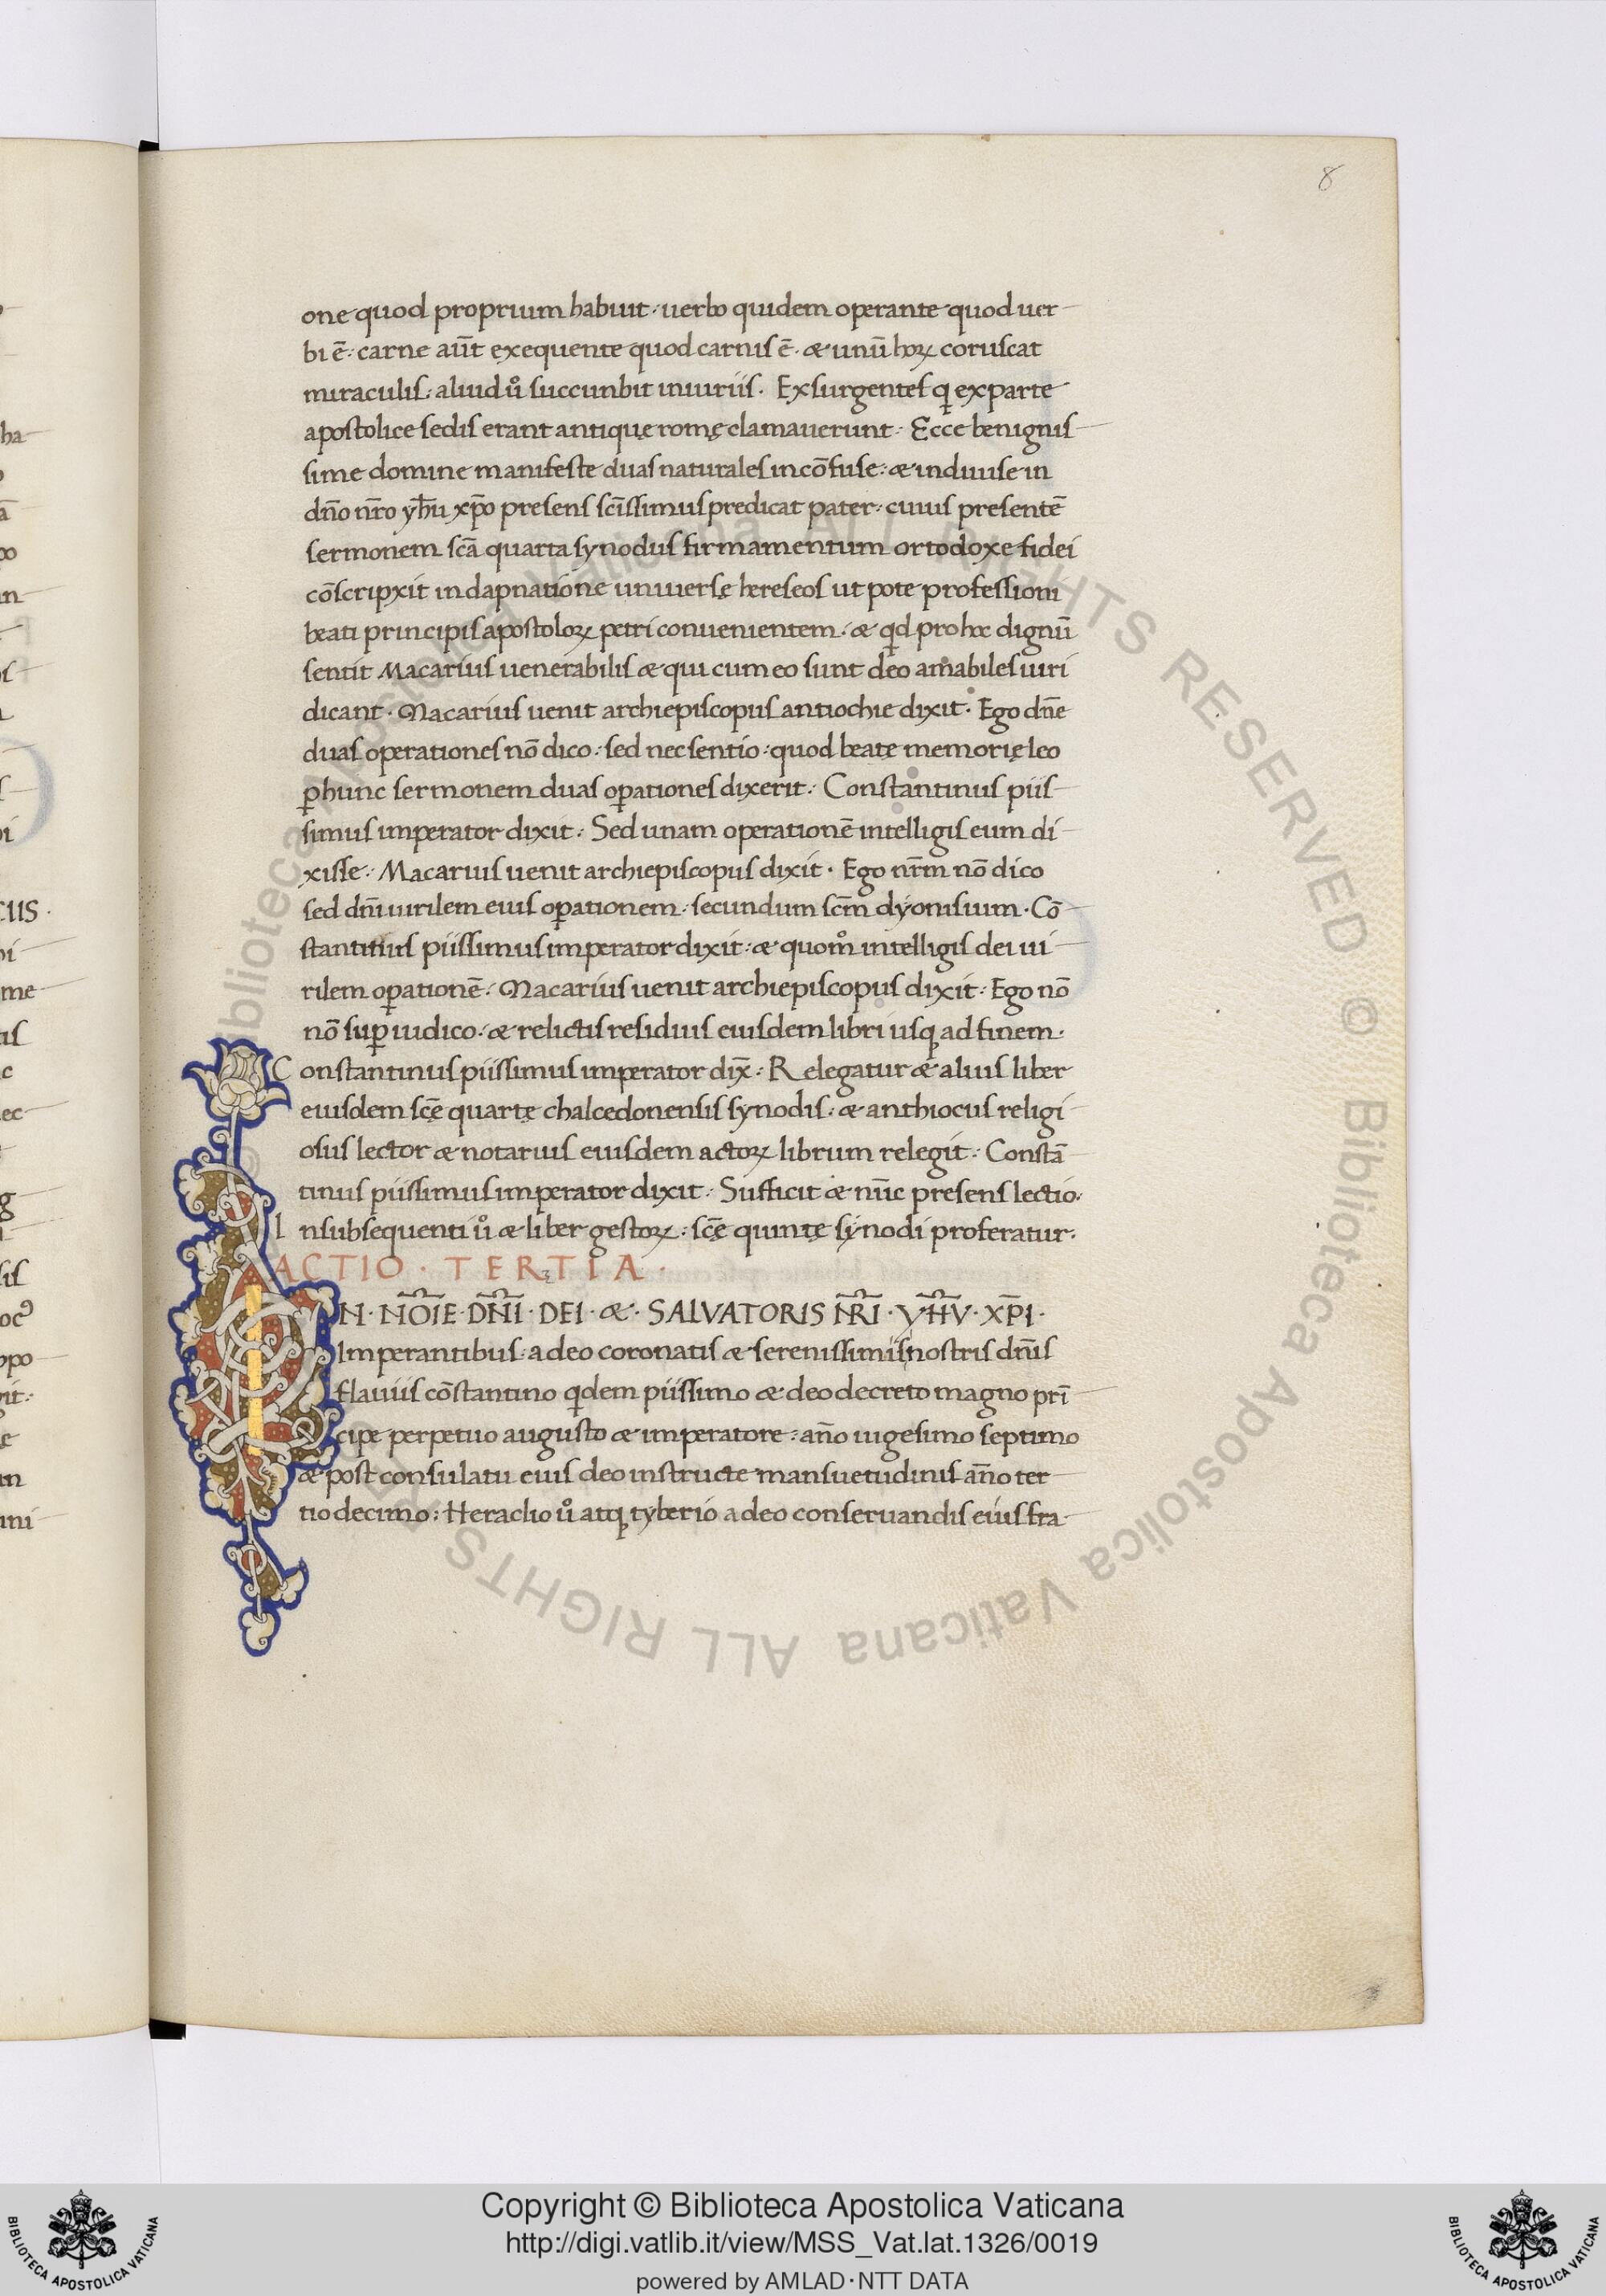 8
one quod proprium habuit · uerbo quidem operante quod uer
bi ē · carne aūt exequente quod carnis ē · & unū hoꝝ coruscat
miraculis : aliud ů succunbit iniuriis · Exsurgentes q̨ ex parte
apostolice sedis erant antiquę romę clamauerunt · Ecce benignis
sime domine manifeste duas naturales incōfuse : & indiuise in
dn̄o nr̄o yħu xp̄o presens sc̄issimus predicat pater : cuius presentē
sermonem sc̄a quarta synodus firmamentum ortodoxe fidei
cōscripxit in dapnatione uniuersę hereseos ut pote professioni
beati principis apostoloꝝ petri conuenientem · & qd̄ pro hoc dignū
sentit Macarius uenerabilis & qui cum eo sunt deo amabiles uiri
dicant · Macarius uenit archiepiscopus antiochie dixit · Ego dn̄e
duas operationes nō dico : sed nec sentio : quod beatę memorię leo
ꝑ hunc sermonem duas oꝑationes dixerit : Constantinus piis
simus imperator dixit : Sed unam operationē intelligis eum di
xisse : Macarius uenit archiepiscopus dixit · Ego nr̄m nō dico
sed dn̄i uirilem eius oꝑationem · secundum sc̄m dyonisium · Cō
stantinus piissimus imperator dixit : & quom̊ intelligis dei ui
rilem oꝑationē : Macarius uenit archiepiscopus dixit : Ego nō
nō suꝑ iudico · & relictis residuis eiusdem libri usq̨ ad finem ·
Constantinus piissimus imperator dix̄ : Relegatur & alius liber
eiusdem sc̄ę quartę chalcedonensis synodis : & anthiocus religi
osus lector & notarius eiusdem actoꝝ librum relegit : Constā
tinus piissimus imperator dixit : Sufficit & nūc presens lectio ·
In subsequenti ů & liber gestoꝝ : sc̄ę quintę synodi proferatur ·
ACTIO · TERTIA ·
IN · NOĪE · DN̄I · DEI · & · SALVATORIS NR̄I · YH̄V · XP̄I ·
Imperantibus · a deo coronatis & serenissimis nostris dn̄is
flauiis cōstantino qd̄em piissimo & deo decreto magno prī
cipe perpetuo augusto & imperatore : an̄o uigesimo septimo
& post consulatu eius deo instructe mansuetudinis an̄o ter
tio decimo : Heraclio ů atq̨ tyberio a deo conseruandis eius fra
Copyright © Biblioteca Apostolica Vaticana
http://digi.vatlib.it/view/MSS_Vat.lat.1326/0019
powered by AMLAD · NTT DATA
BIBLIOTECA APOSTOLICA VATICANA
BIBLIOTECA APOSTOLICA VATICANA
© Biblioteca Apostolica Vaticana ALL RIGHTS RESERVED © Biblioteca Apostolica Vaticana ALL RIGHTS RE